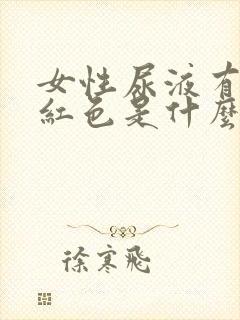 女性尿液有
紅色是什麼
徐寒飛